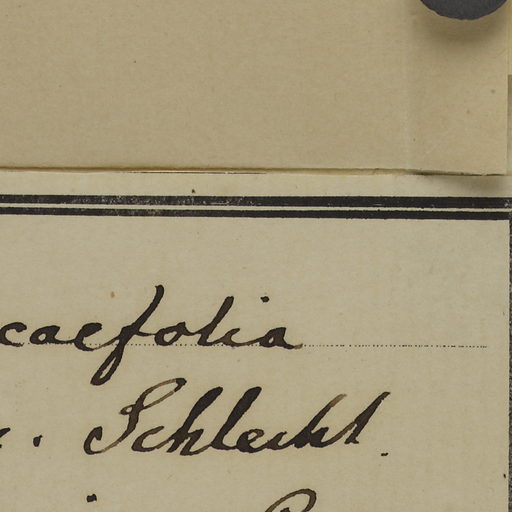 caefolia
. Schlecht.